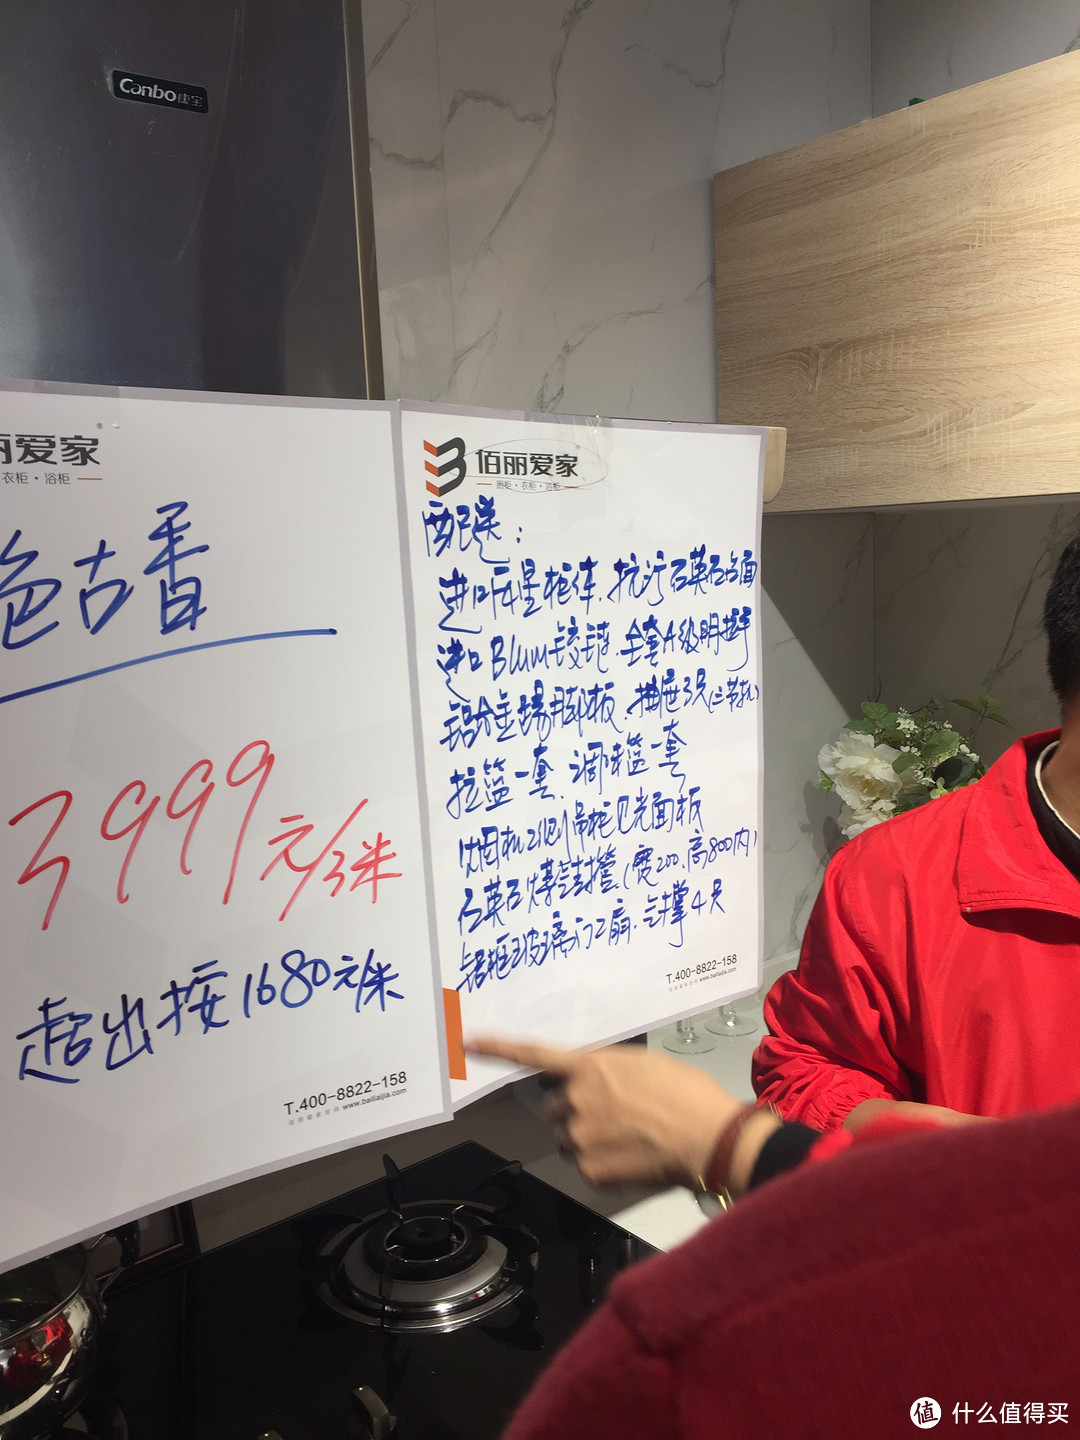 Canbo康宝
丽爱家
衣柜·浴柜
色古香
3999元/3米
超出按1680元/米
T.400-8822-158
www.bailiaijia.com
佰丽爱家
橱柜·衣柜·浴柜
配送:
进口五星柜体.抗污石英石台面
进口Blum铰链.全套A级明拉手
铝合金踢脚板.抽屉3只(三节轨)
拉篮一套.调味篮一套
烟机2侧吊柜见光面板
石英石煤气挂(宽200.高800内)
铝框玻璃门2扇.气撑4只
T.400-8822-158
www.bailiaijia.com
值 什么值得买